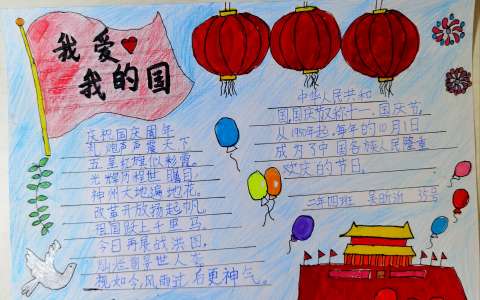 我爱
我的国
庆祝国庆周年
礼炮声声震天下
五星红旗似彩霞。
光辉历程世瞩目
神州大地遍地花。
改革开放扬起帆，
祖国踏上千里马，
今日再展战洪图，
灿烂前景世人夸
视如今，风雨过，看更神气。
中华人民共和
国国庆节又称十一、国庆节，
从1950年起，每年的10月1日
成为了中国各族人民隆重
欢庆的节日。
二年四班 吴昕 35号